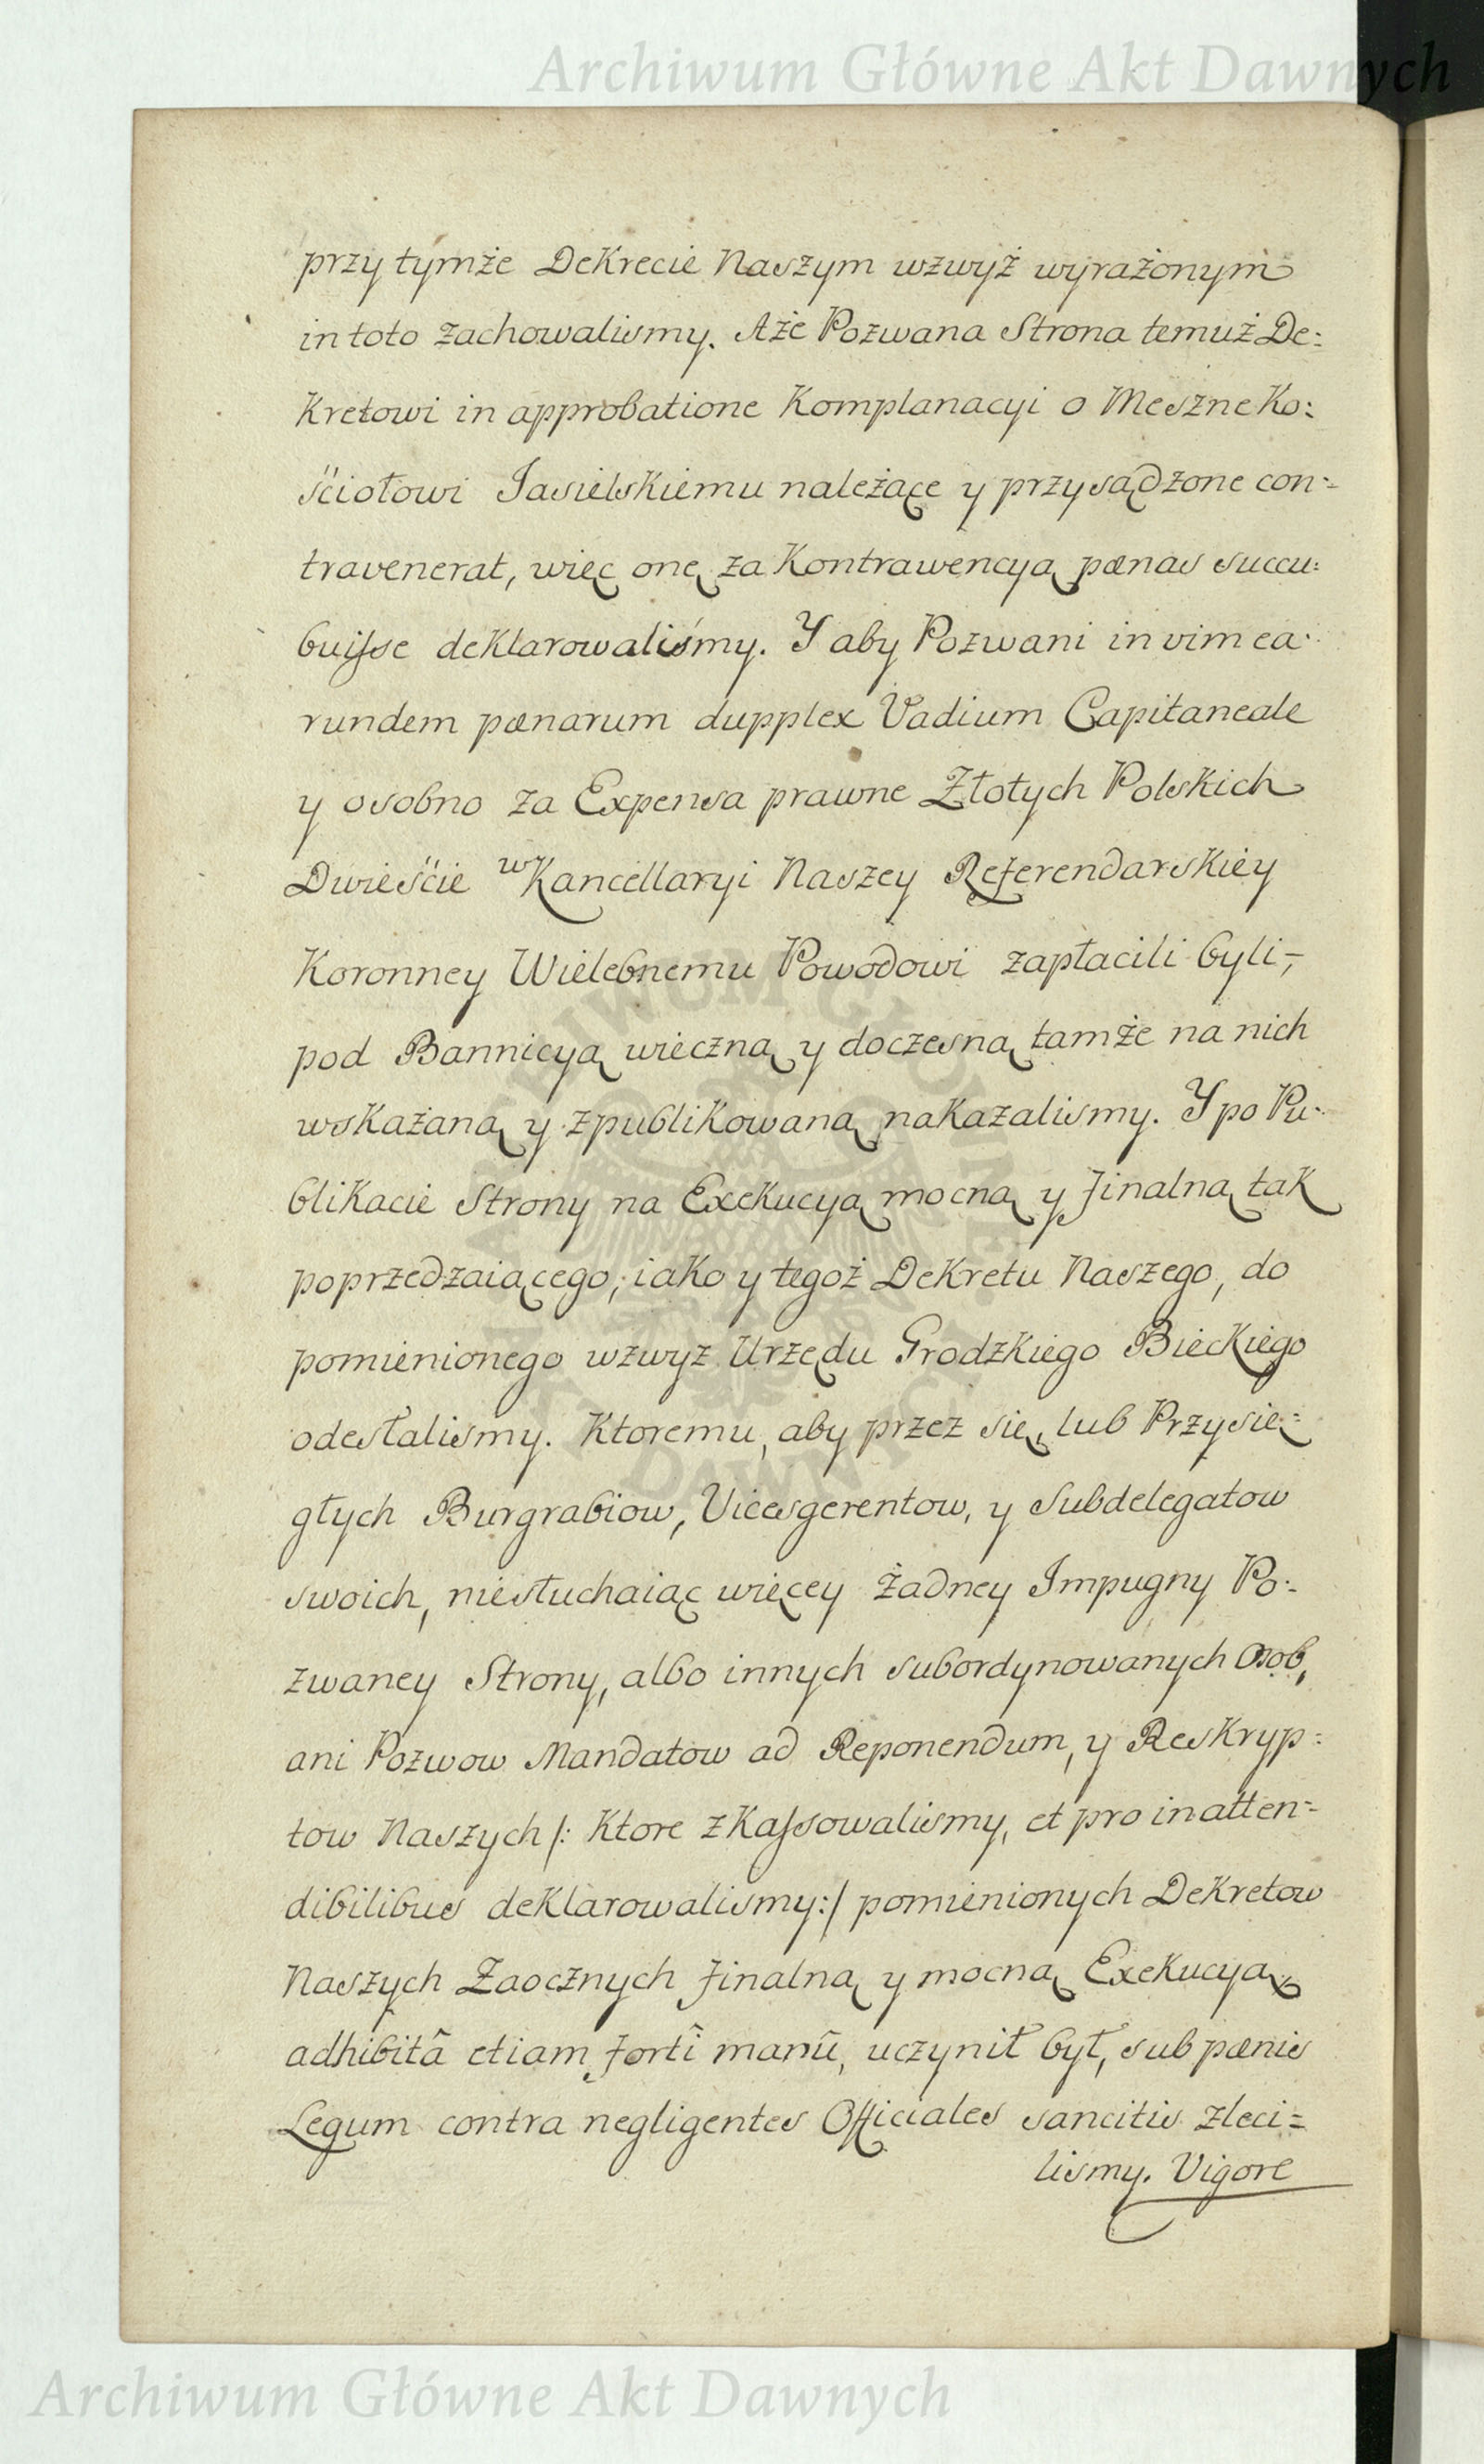 Archiwum Główne Akt Dawnych
przy tymże Dekrecie Naszym wzwyż wyrażonym
in toto zachowalismy. Aże Pozwana Strona temuż De:
kretowi in approbatione Komplanacyi o Meszne Ko:
ściołowi Jasielskiemu należące y przysądzone con:
travenerat, więc onę za Kontrawencyą pænas succu:
buisse deklarowaliśmy. Y aby Pozwani in vim ea:
rundem pænarum dupplex Vadium Capitaneale
y osobno za Expensa prawne Złotych Polskich
Dwieście w Kancellaryi Naszey Referendarskiey
Koronney Wielebnemu Powodowi zapłacili byli,
pod Bannicyą wieczną y doczesną tamże na nich
wskażaną y zpublikowaną nakazalismy. Y po Pu:
blikacie Strony na Exekucyą mocną y finalną tak
poprzedzaiącego, iako y tegoż Dekretu Naszego, do
pomienionego wzwyz Urzędu Grodzkiego Bieckiego
odesłalismy. Ktoremu, aby przez się, lub Przysię:
głych Burgrabiow, Vicesgerentow, y Subdelegatow
swoich, niesłuchaiąc więcey żadney Impugny Po:
zwaney Strony, albo innych subordynowanych Osob,
ani Pozwow Mandatow ad Reponendum, y Reskryp:
tow Naszych /: Ktore zkassowalismy, et pro inatten:
dibilibus deklarowalismy :/ pomienionych Dekretow
Naszych Zaocznych finalną y mocną Exekucyą
adhibitâ etiam forti manû, uczynił był, sub pænis
Legum contra negligentes Officiales sancitis zleci=
lismy. Vigore
Archiwum Główne Akt Dawnych